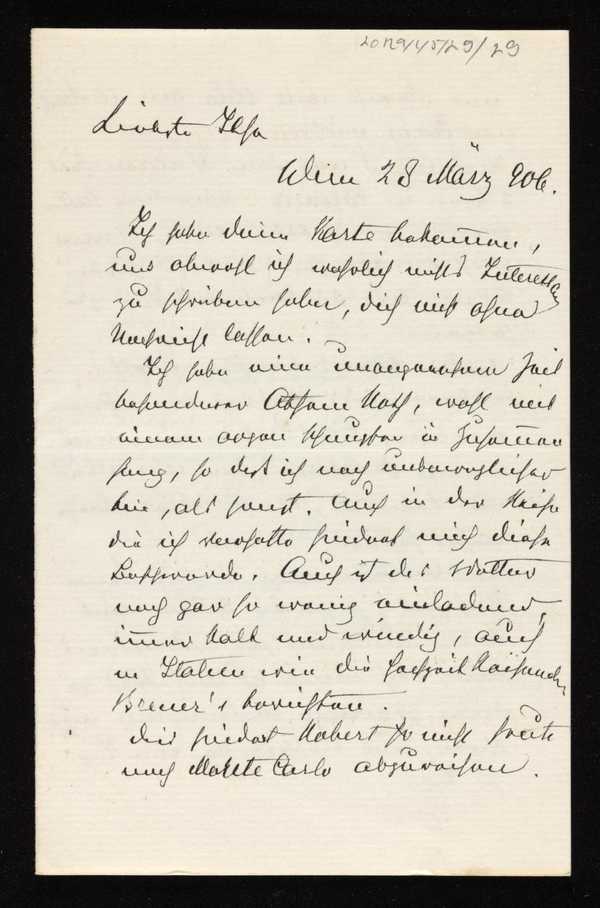 20R9/45/29/29
Liebste Ilse
Wien 28 März 906.
Ich habe deine Karte bekommen,
und obwohl ich wahrlich nicht's Interessantes
zu schreiben habe, dich nicht ohne
Nachricht lassen.
Ich habe eine unangenehme Zeit
besonderer Athem Noth, wohl mit
einem argen Schnupfen in Zusammen
hang, so daß ich noch unbeweglicher
bin, als sonst. Auch in der Reise
die ich vorhatte hindert mich diese
Beschwerde. Auch ist das Wetter
noch gar so wenig einladend,
immer kalt und windig, auch
in Italien wie die Hochzeit Reisenden
Breuer's berichten.
dies hindert Robert nicht heute
nach Monte Carlo abzureisen.